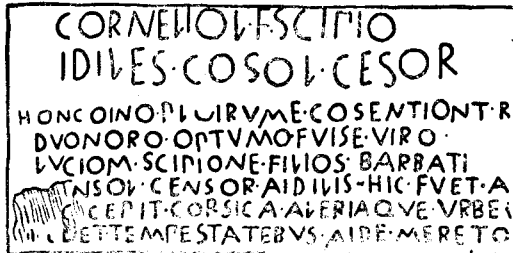 CORNELIO·L·F·SCIPIO
IDILES·COSOL·CESOR
HONC OINO·PLOIRVME·COSENTIONT·R
DVONORO·OPTVMO·FVISE·VIRO·
LVCIOM·SCIPIONE·FILIOS·BARBATI
NSOL·CENSOR·AIDILIS·HIC·FVET·A
CEPIT·CORSICA·ALERIAQVE·VRBE
DET·TEMPESTATEBVS·AIDE·MERETO